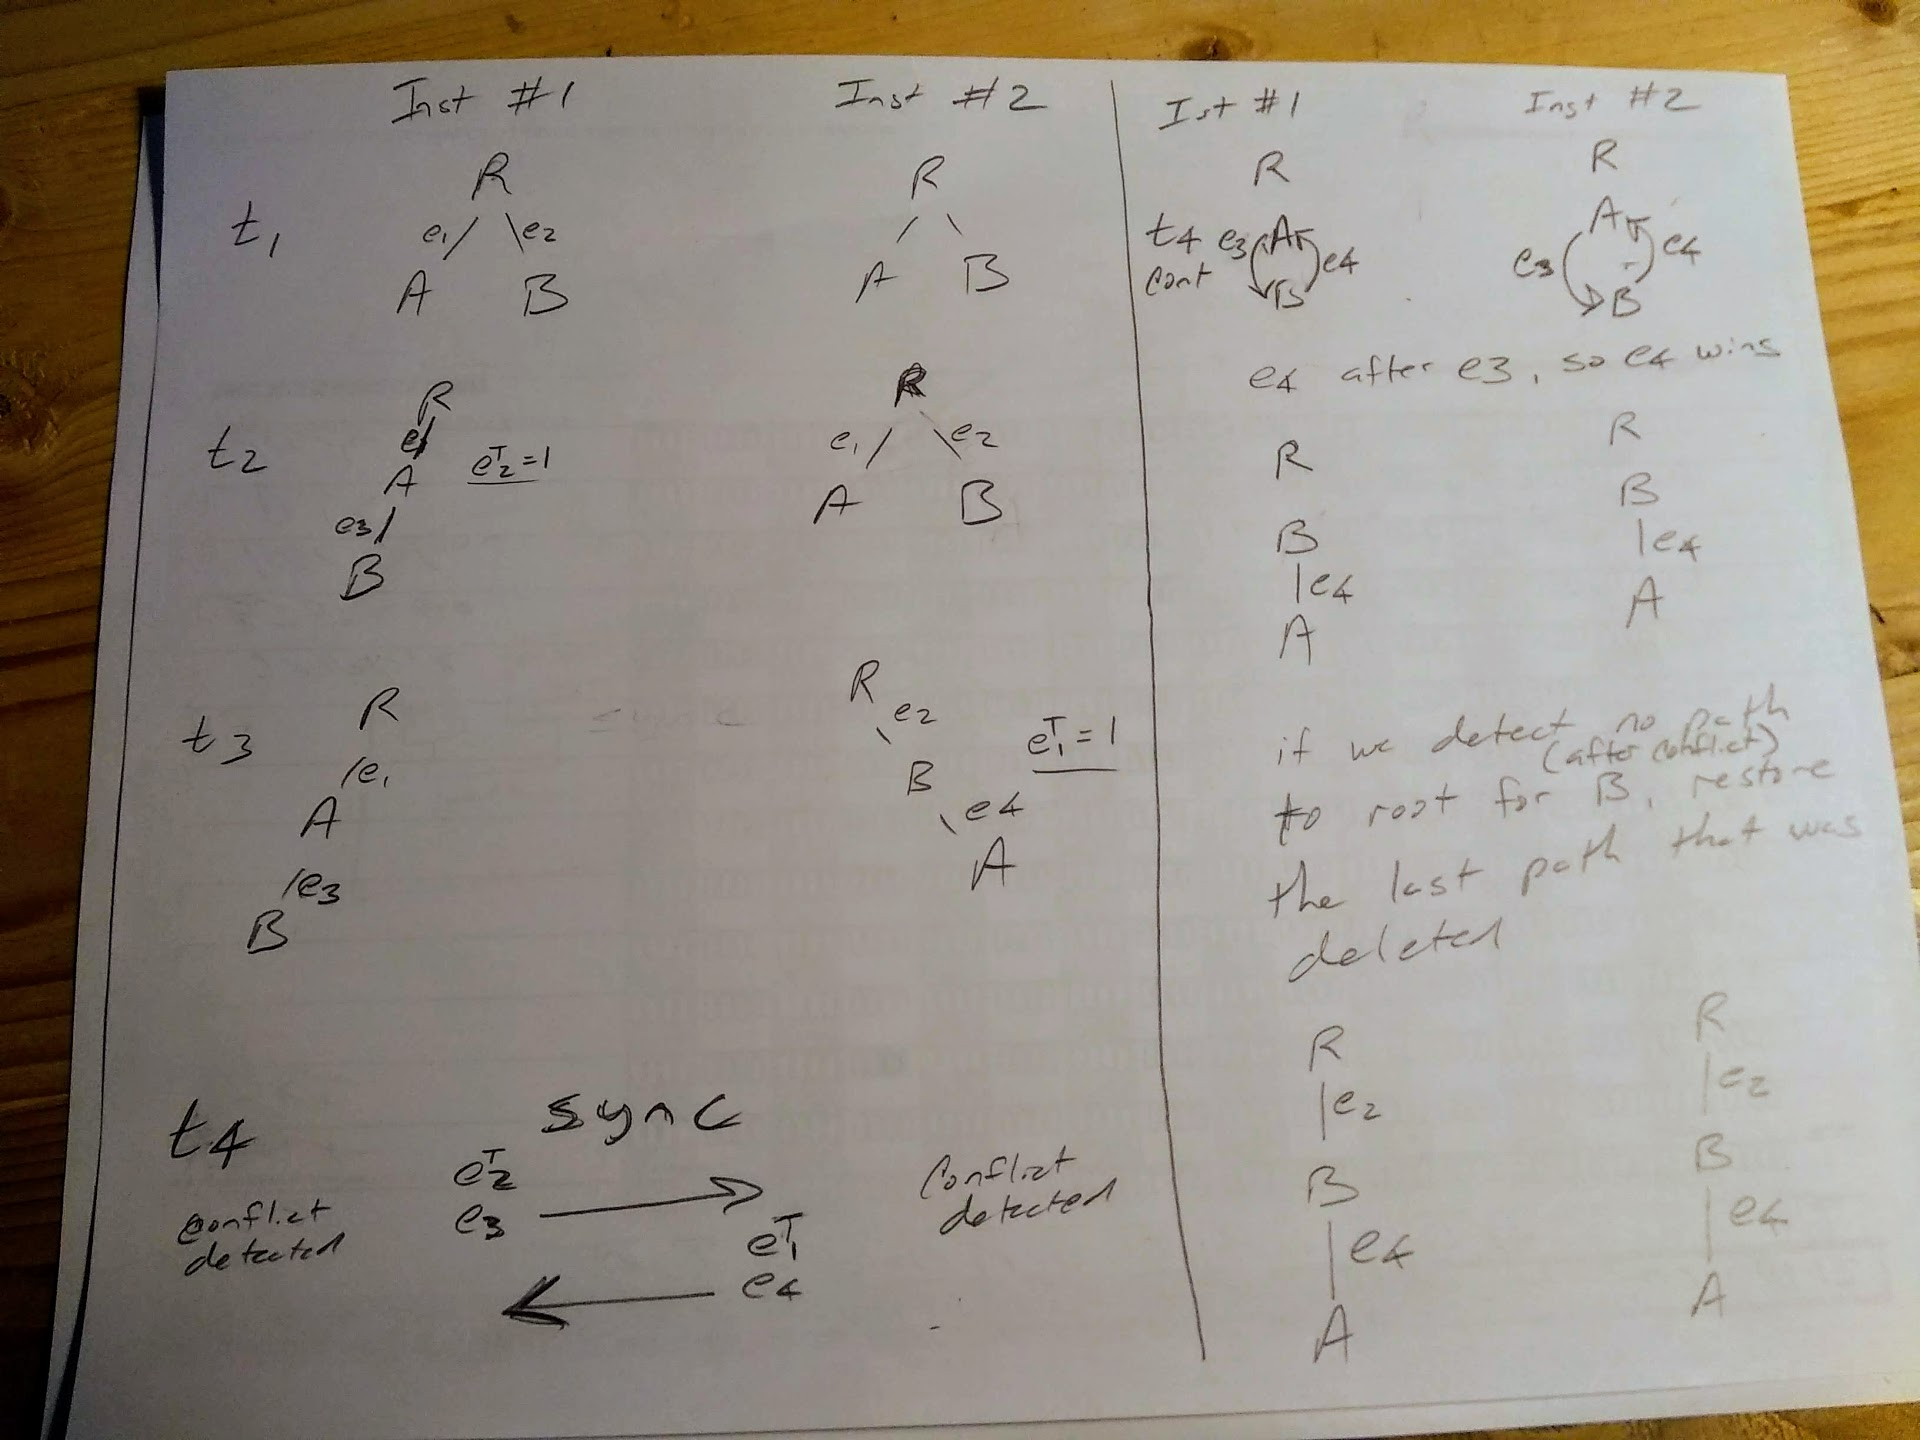 Inst #1
Inst #2
t1
R
e1 / \ e2
A B
R
/ \
A B
t2
R
e1
A
e3 /
B
e2^T=1
R
e1 / \ e2
A B
t3
R
/e1
A
/e3
B
R
\ e2
B
\ e4
A
e1^T = 1
t4
sync
conflict
detected
e2^T
e3
e1^T
e4
Conflict
detected
Ist #1
Inst #2
t4
cont
R
A
e3 e4
B
R
A
e3 e4
B
e4 after e3, so e4 wins
R
B
|e4
A
R
B
|e4
A
if we detect no path
(after conflict)
to root for B, restore
the last path that was
deleted
R
|e2
B
|e4
A
R
|e2
B
|e4
A